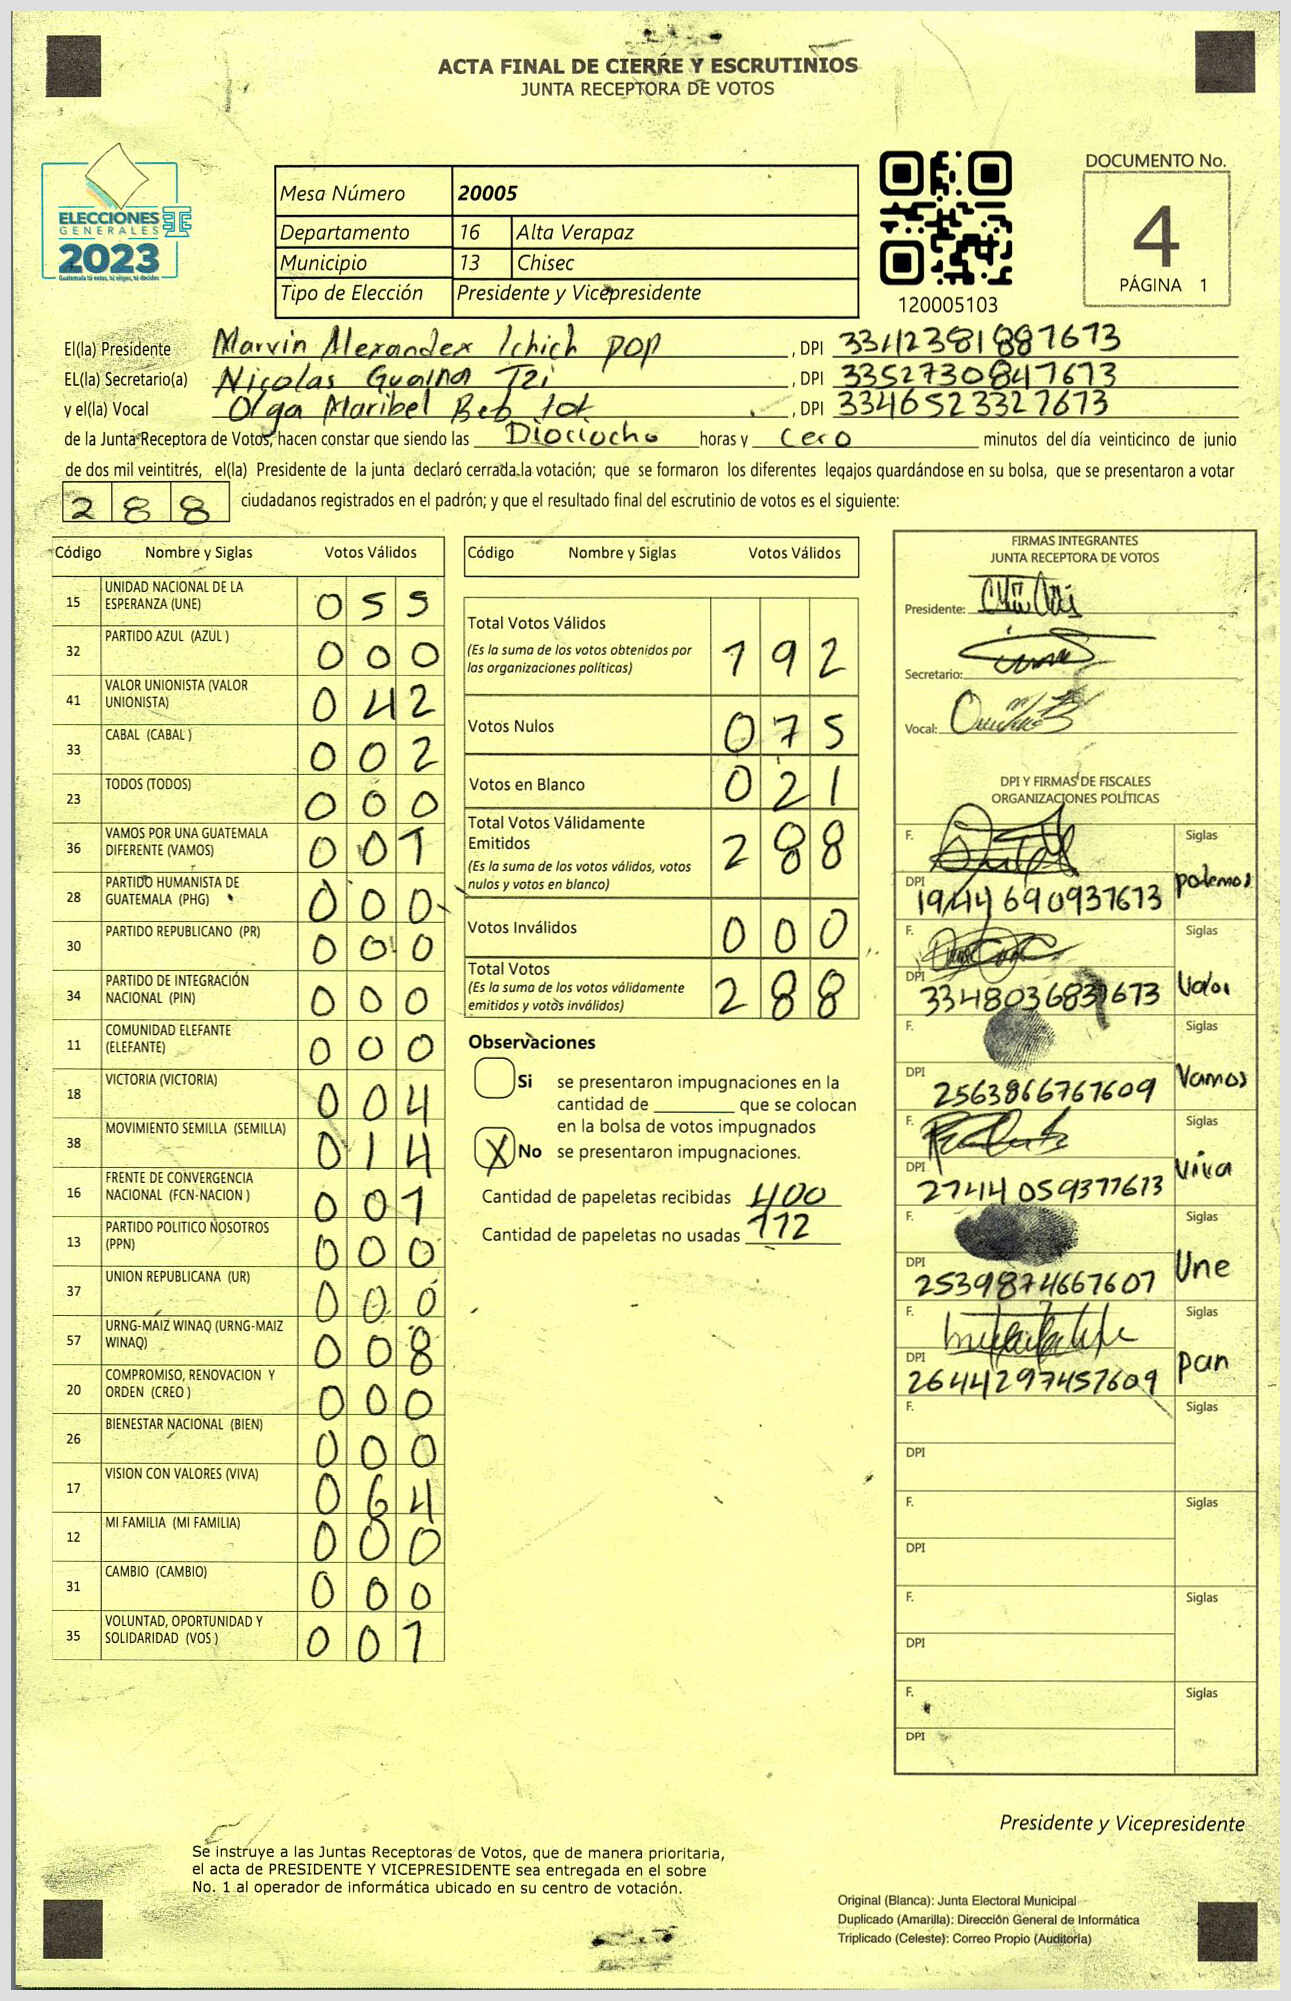 ACTA FINAL DE CIERRE Y ESCRUTINIOS
JUNTA RECEPTORA DE VOTOS
ELECCIONES
GENERALES
2023
Guatemala tú votas, tú eliges, tú decides
Mesa Número 20005
Departamento 16 Alta Verapaz
Municipio 13 Chisec
Tipo de Elección Presidente y Vicepresidente
120005103
DOCUMENTO No.
4
PÁGINA 1
El(la) Presidente Marvin Alexander Ichich pop , DPI 3342381887673
EL(la) Secretario(a) Nicolas Guaina Tzi , DPI 3352730847673
y el(la) Vocal Olga Maribel Beb tot , DPI 3346523327673
de la Junta Receptora de Votos, hacen constar que siendo las Diociocho horas y cero minutos del día veinticinco de junio
de dos mil veintitrés, el(la) Presidente de la junta declaró cerrada la votación; que se formaron los diferentes legajos guardándose en su bolsa, que se presentaron a votar
288 ciudadanos registrados en el padrón; y que el resultado final del escrutinio de votos es el siguiente:
Código Nombre y Siglas Votos Válidos
15 UNIDAD NACIONAL DE LA ESPERANZA (UNE) 055
32 PARTIDO AZUL (AZUL ) 000
41 VALOR UNIONISTA (VALOR UNIONISTA) 042
33 CABAL (CABAL ) 002
23 TODOS (TODOS) 000
36 VAMOS POR UNA GUATEMALA DIFERENTE (VAMOS) 001
28 PARTIDO HUMANISTA DE GUATEMALA (PHG) 000
30 PARTIDO REPUBLICANO (PR) 000
34 PARTIDO DE INTEGRACIÓN NACIONAL (PIN) 000
11 COMUNIDAD ELEFANTE (ELEFANTE) 000
18 VICTORIA (VICTORIA) 004
38 MOVIMIENTO SEMILLA (SEMILLA) 014
16 FRENTE DE CONVERGENCIA NACIONAL (FCN-NACION ) 001
13 PARTIDO POLITICO NOSOTROS (PPN) 000
37 UNION REPUBLICANA (UR) 000
57 URNG-MAIZ WINAQ (URNG-MAIZ WINAQ) 008
20 COMPROMISO, RENOVACION Y ORDEN (CREO ) 000
26 BIENESTAR NACIONAL (BIEN) 000
17 VISION CON VALORES (VIVA) 064
12 MI FAMILIA (MI FAMILIA) 000
31 CAMBIO (CAMBIO) 000
35 VOLUNTAD, OPORTUNIDAD Y SOLIDARIDAD (VOS ) 001
Código Nombre y Siglas Votos Válidos
Total Votos Válidos 192
(Es la suma de los votos obtenidos por
las organizaciones políticas)
Votos Nulos 075
Votos en Blanco 021
Total Votos Válidamente
Emitidos 288
(Es la suma de los votos válidos, votos
nulos y votos en blanco)
Votos Inválidos 000
Total Votos 288
(Es la suma de los votos válidamente
emitidos y votos inválidos)
Observaciones
Si se presentaron impugnaciones en la
cantidad de ________ que se colocan
en la bolsa de votos impugnados
X No se presentaron impugnaciones.
Cantidad de papeletas recibidas 400
Cantidad de papeletas no usadas 112
FIRMAS INTEGRANTES
JUNTA RECEPTORA DE VOTOS
Presidente:
Secretario:
Vocal:
DPI Y FIRMAS DE FISCALES
ORGANIZACIONES POLÍTICAS
F. Siglas
DPI 1944690937673 podemos
F. Siglas
DPI 3348036837673 Valor
F. Siglas
DPI 2563866767609 Vamos
F. Siglas
DPI 2744059377673 viva
F. Siglas
DPI 2539874667607 Une
F. Siglas
DPI 2644297457609 pan
F. Siglas
DPI
F. Siglas
DPI
F. Siglas
DPI
F. Siglas
DPI
Presidente y Vicepresidente
Se instruye a las Juntas Receptoras de Votos, que de manera prioritaria,
el acta de PRESIDENTE Y VICEPRESIDENTE sea entregada en el sobre
No. 1 al operador de informática ubicado en su centro de votación.
Original (Blanca): Junta Electoral Municipal
Duplicado (Amarilla): Dirección General de Informática
Triplicado (Celeste): Correo Propio (Auditoría)